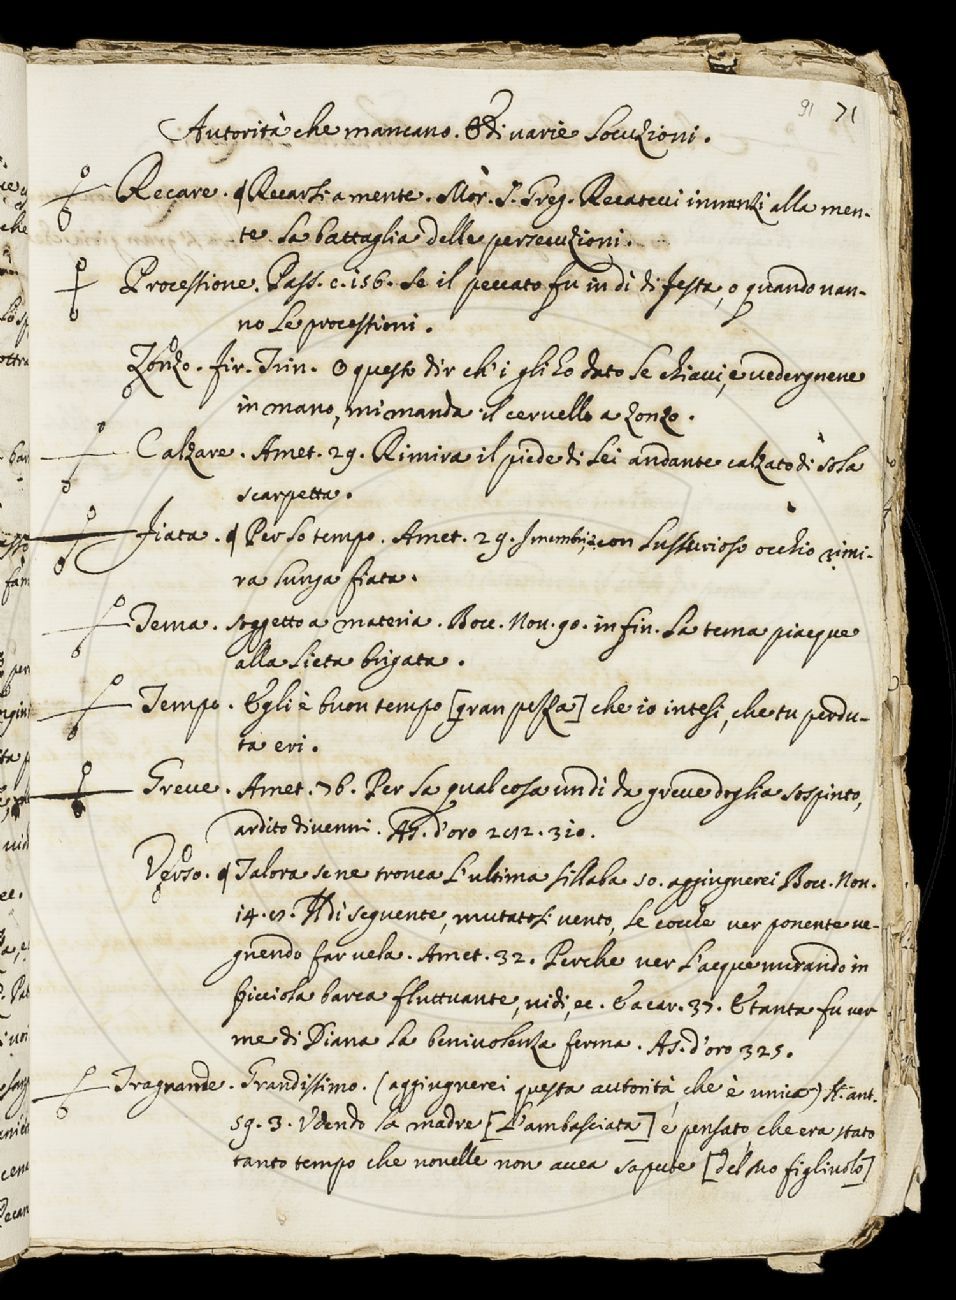 91 71
Autorità che mancano. Et di varie Locuzioni.
Recare. ¶ Recarsi a mente. Mor. S. Greg. Recatevi innanzi alla men-
te la battaglia delle persecuzioni.
Processione. Pass. c. 156. Se il peccato fu in dì di festa, o quando van-
no le processioni.
Zonzo. Fir. Trin. O questo dir ch'i gli ho dato le chiavi, e vedergnene
in mano, mi manda il cervello a zonzo.
Calzare. Amet. 29. Rimira il piede di lei andante calzato di sola
scarpetta.
Fiata. ¶ Per lo tempo. Amet. 29. con lussurioso occhio rimi-
ra lunga fiata.
Tema. soggetto a materia. Bocc. Nov. 90. in fin. La tema piacque
alla lieta brigata.
Tempo. Egli è buon tempo [gran pezza] che io intesi, che tu perdu-
ta eri.
Greve. Amet. 76. Per la qual cosa un dì da greve doglia sospinto,
ardito divenni. As. d'oro 310.
Verso. ¶ Talora se ne tronca l'ultima sillaba so. aggiugnerei Bocc. Nov.
14. Il dì seguente, mutatosi vento, le cocche ver ponente ve-
gnendo far vela. Amet. 32. Perche ver l'acque mirando in
picciola barca fluttuante, vidi, ec. E a car. 37. E tanta fu ver
me di Diana la benivolenza ferma. As. d'oro 325.
Tragrande. Grandissimo. (aggiugnerei questa autorità, che è unica) ant.
59. 3. Udendo la madre [l'ambasciata] e pensato, che era stato
tanto tempo che novelle non avea sapute [del suo figliuolo]